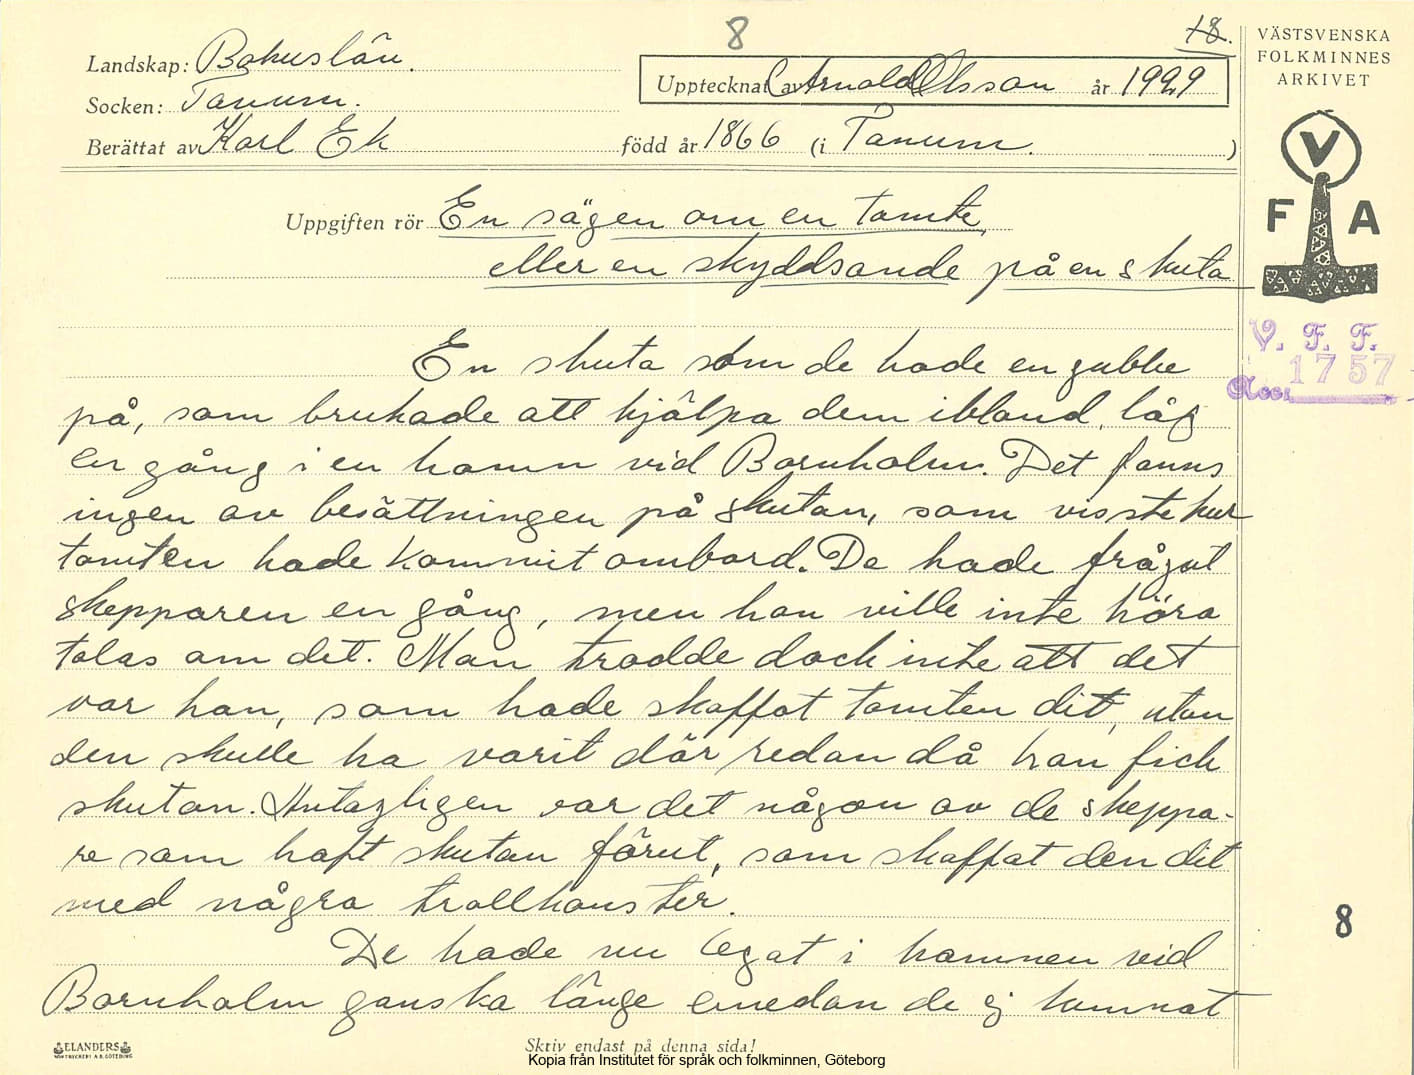 8
18.
VÄSTSVENSKA
FOLKMINNES
ARKIVET
Landskap: Bohuslän.
Upptecknat av Arnold Olsson år 1929
Socken: Tanum.
Berättat av Karl Ek född år 1866 (i Tanum. )
V
F A
Uppgiften rör En sägen om en tomte,
eller en skyddsande på en skuta
V. F. F.
Acc. 1757
En skuta som de hade en gubbe
på, som brukade att hjälpa dem ibland, låg
en gång i en hamn vid Bornholm. Det fanns
ingen av besättningen på skutan, som visste hur
tomten hade kommit ombord. De hade frågat
skepparen en gång, men han ville inte höra
talas om det. Man trodde dock inte att det
var han, som hade skaffat tomten dit, utan
den skulle ha varit där redan då han fick
skutan. Antagligen var det någon av de skeppa-
re som haft skutan förut, som skaffat den dit
med några trollkonster.
8
De hade nu legat i hamnen vid
Bornholm ganska länge emedan de ej kunnat
ELANDERS
BOKTRYCKERI A.B. GÖTEBORG
Skriv endast på denna sida!
Kopia från Institutet för språk och folkminnen, Göteborg